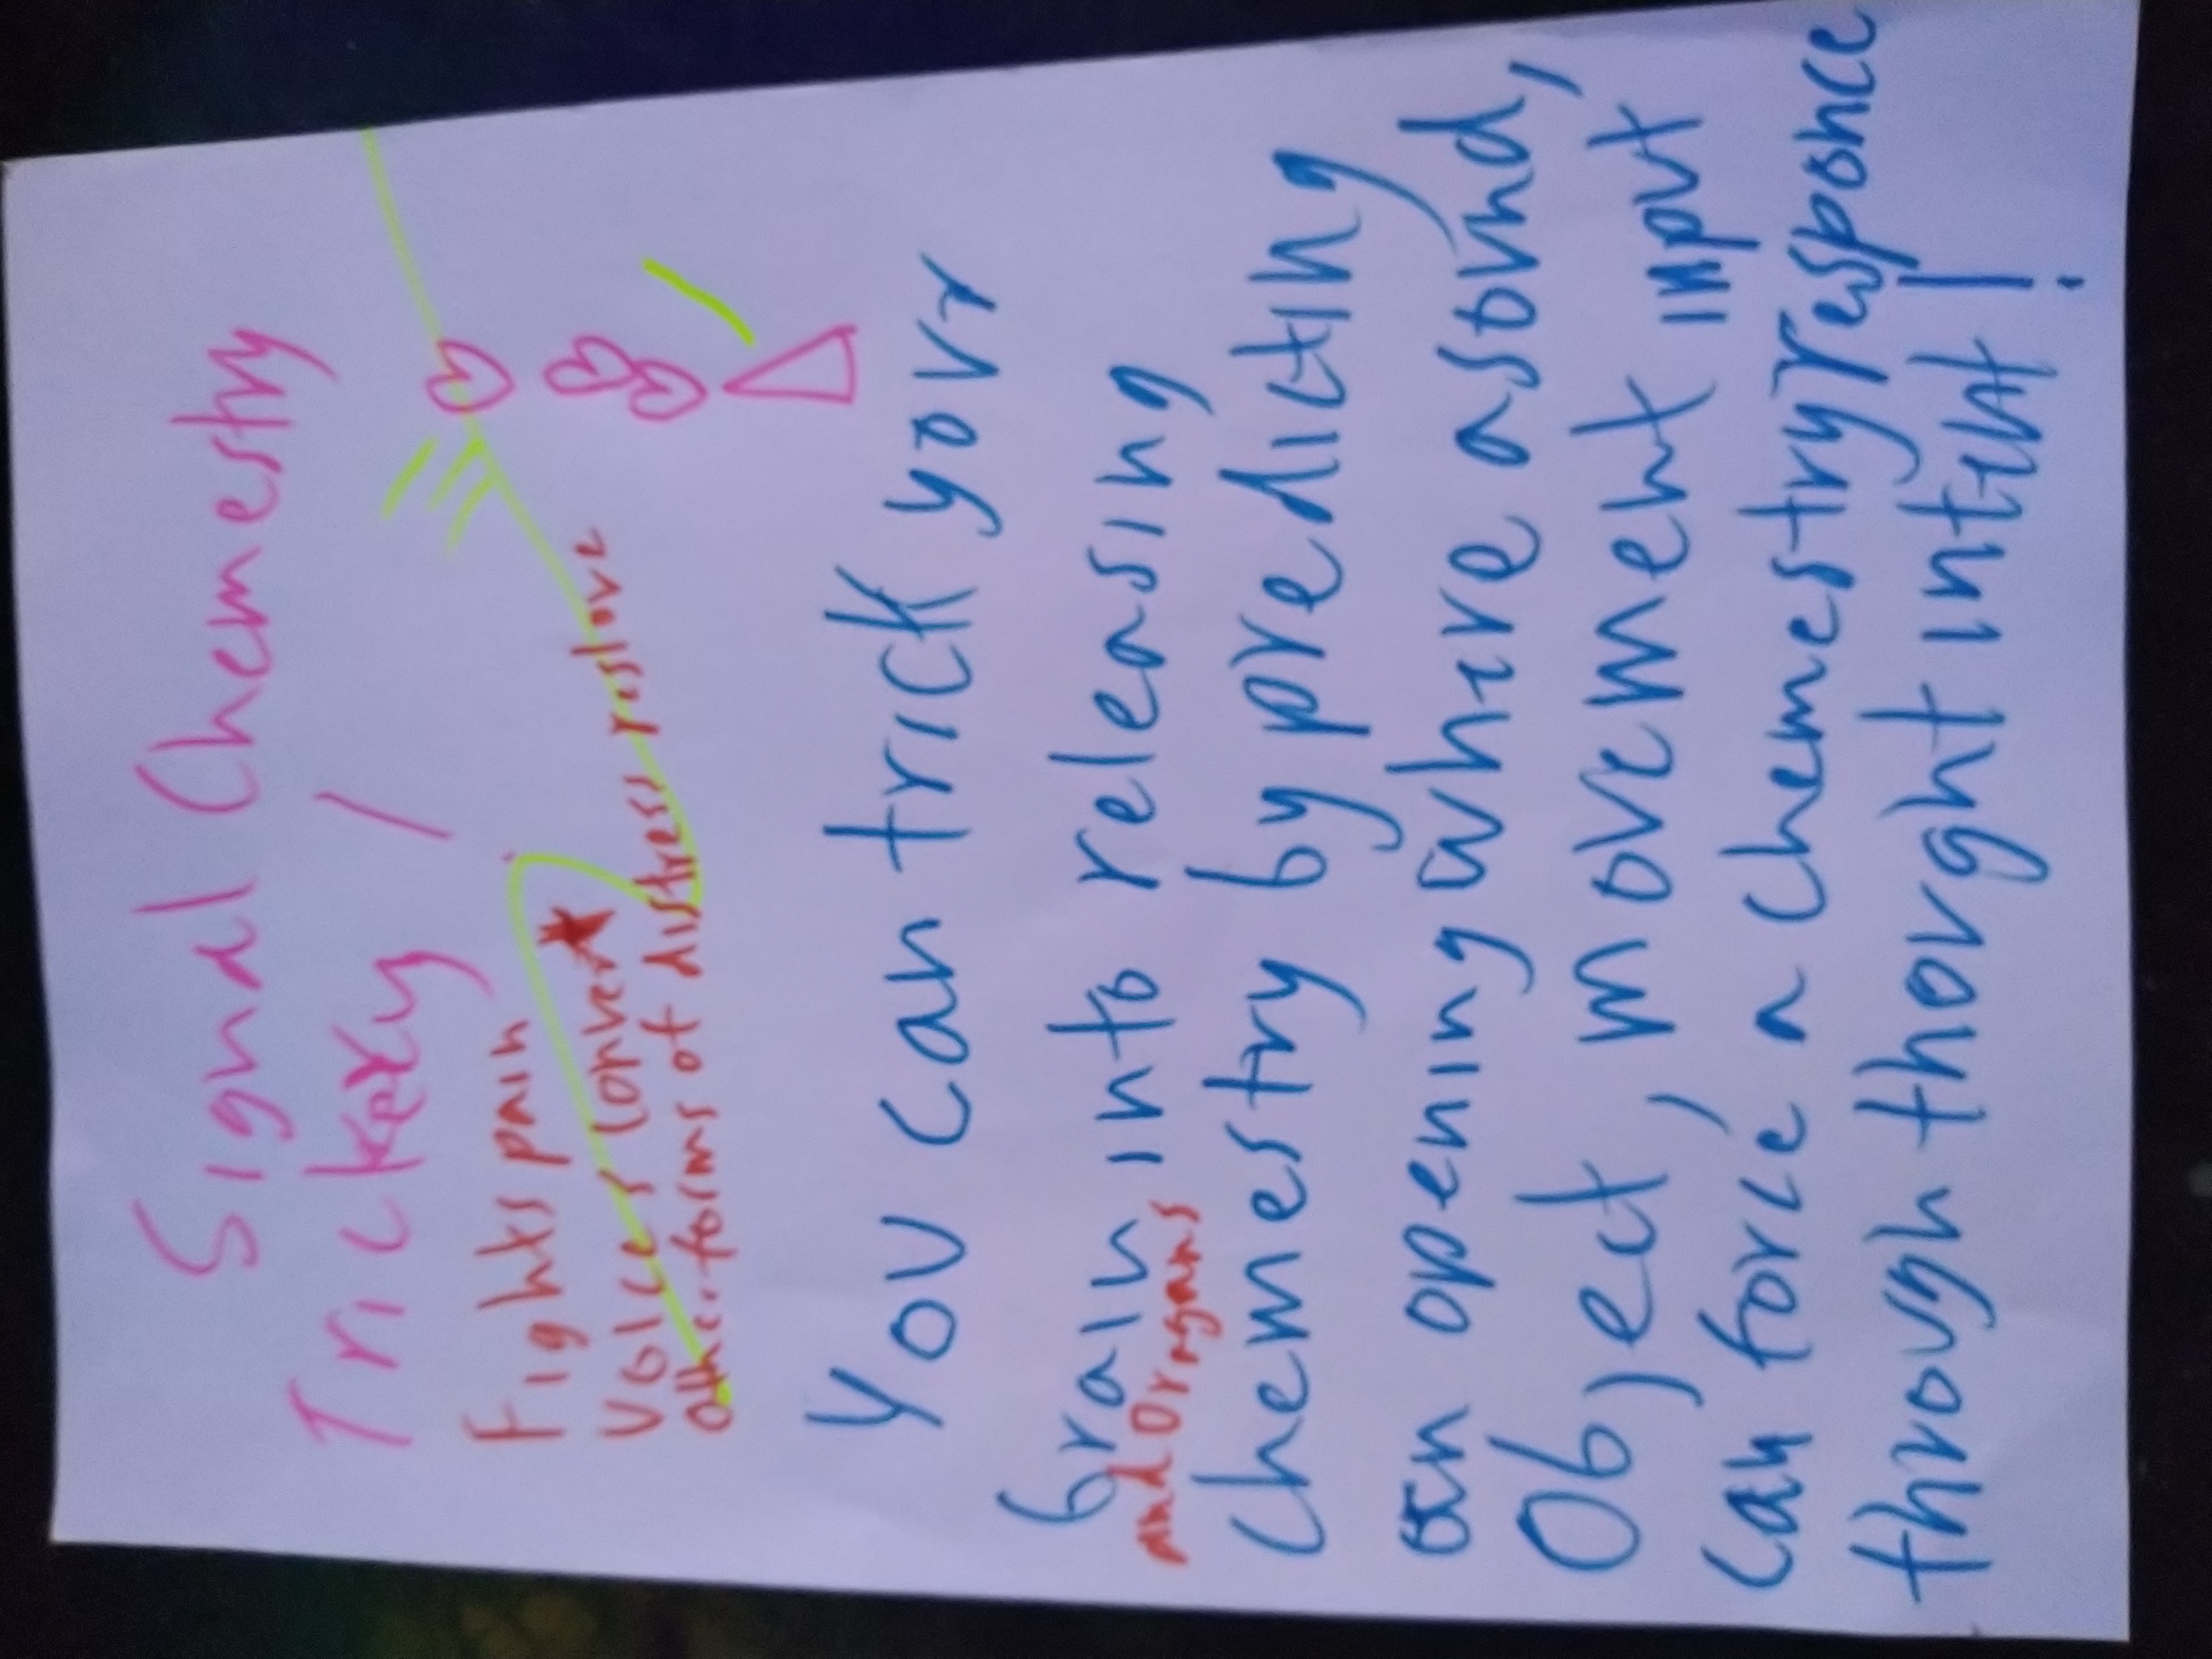 Signal Chemestry
Trickery /
Fights pain
Voices (other
other forms of distress resiove
You can trick your
brain into releasing
and Orngans
Chemestry by predicting
an opening where a sound,
Object, movemet input
can force a chemestry response
through thought intent!